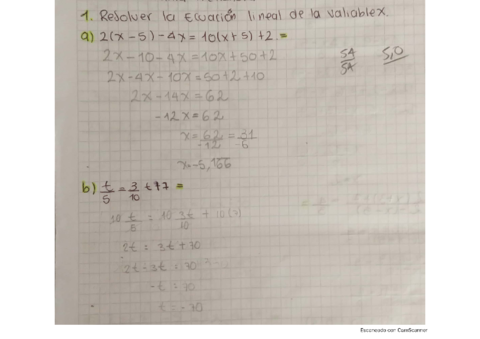 1. Resolver la Ecuación lineal de la variable x.
a) 2(x-5)-4x=10(x+5)+2=
2x-10-4x=10x+50+2
2x-4x-10x=50+2+10
2x-14x=62
-12x=62
x=62/-12=31/-6
x=-5,166
5A/5A 5,0
b) t/5=3/10 t+7=
10 t/5 = 10 3t/10 +
2t = 3t+70
2t-3t = 70
-t = 70
t = -70
Escaneado con CamScanner